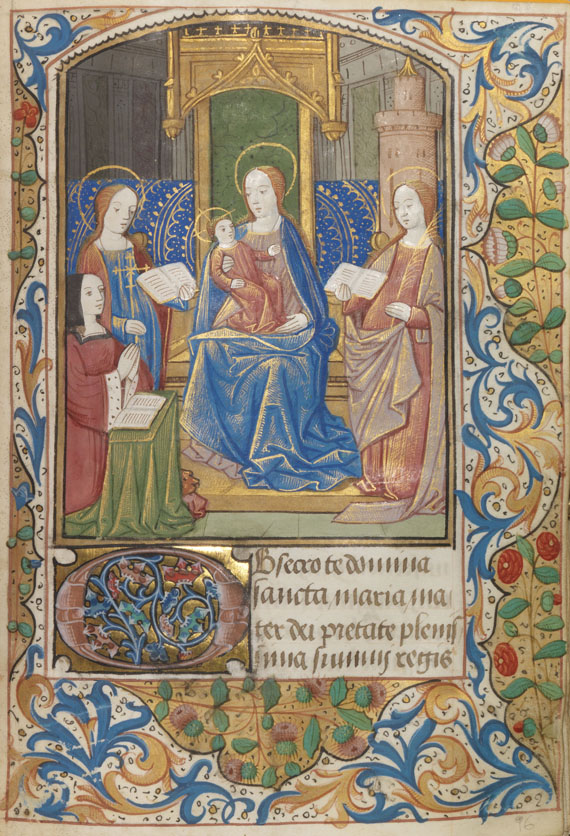 OBsecro te domina
sancta maria ma
ter dei pietate plenis
sima summi regis
96